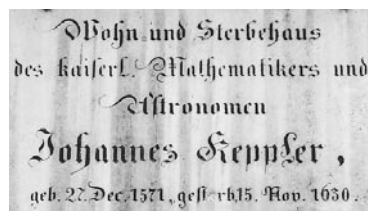 Wohn und Sterbehaus
des kaiserl. Mathematikers und
Astronomen
Johannes Keppler,
geb. 27. Dec. 1571, gest rb.15. Nov. 1630.